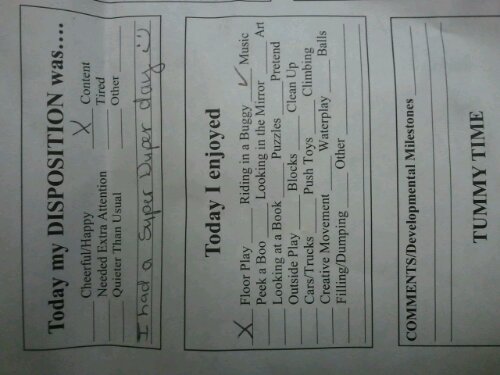 Today my DISPOSITION was....
Cheerful/Happy X Content
Needed Extra Attention Tired
Quieter Than Usual Other
I had a super duper day :)
Today I enjoyed
X Floor Play Riding in a Buggy ✓ Music
Peek a Boo Looking in the Mirror Art
Looking at a Book Puzzles Pretend
Outside Play Blocks Clean Up
Cars/Trucks Push Toys Climbing
Creative Movement Waterplay Balls
Filling/Dumping Other
COMMENTS/Developmental Milestones
TUMMY TIME